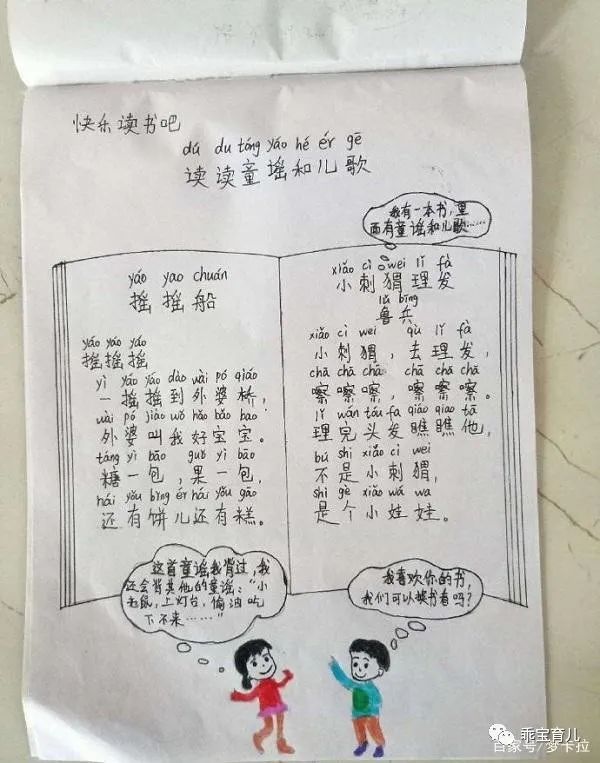 快乐读书吧
dú du tóng yáo hé ér gē
读读童谣和儿歌
我有一本书，里
面有童谣和儿歌……
yáo yao chuán
摇摇船
yáo yáo yáo
摇摇摇
yì yáo yáo dào wài pó qiáo
一摇摇到外婆桥，
wài pó jiào wǒ hǎo bǎo bao
外婆叫我好宝宝。
táng yì bāo guǒ yì bāo
糖一包，果一包，
hái yǒu bǐng ér hái yǒu gāo
还有饼儿还有糕。
xiǎo cì wei lǐ fà
小刺猬理发
lǔ bīng
鲁兵
xiǎo cì wei qù lǐ fà
小刺猬，去理发，
chā chā chā chā chā chā
嚓嚓嚓，嚓嚓嚓。
lǐ wán tóu fa qiáo qiao tā
理完头发瞧瞧他，
bú shì xiǎo cì wei
不是小刺猬，
shì gè xiǎo wá wa
是个小娃娃。
这首童谣我背过，我
还会背其他的童谣：“小
老鼠，上灯台，偷油吃
下不来……”
我喜欢你的书，
我们可以换书看吗？
乖宝育儿
百家号/梦卡拉